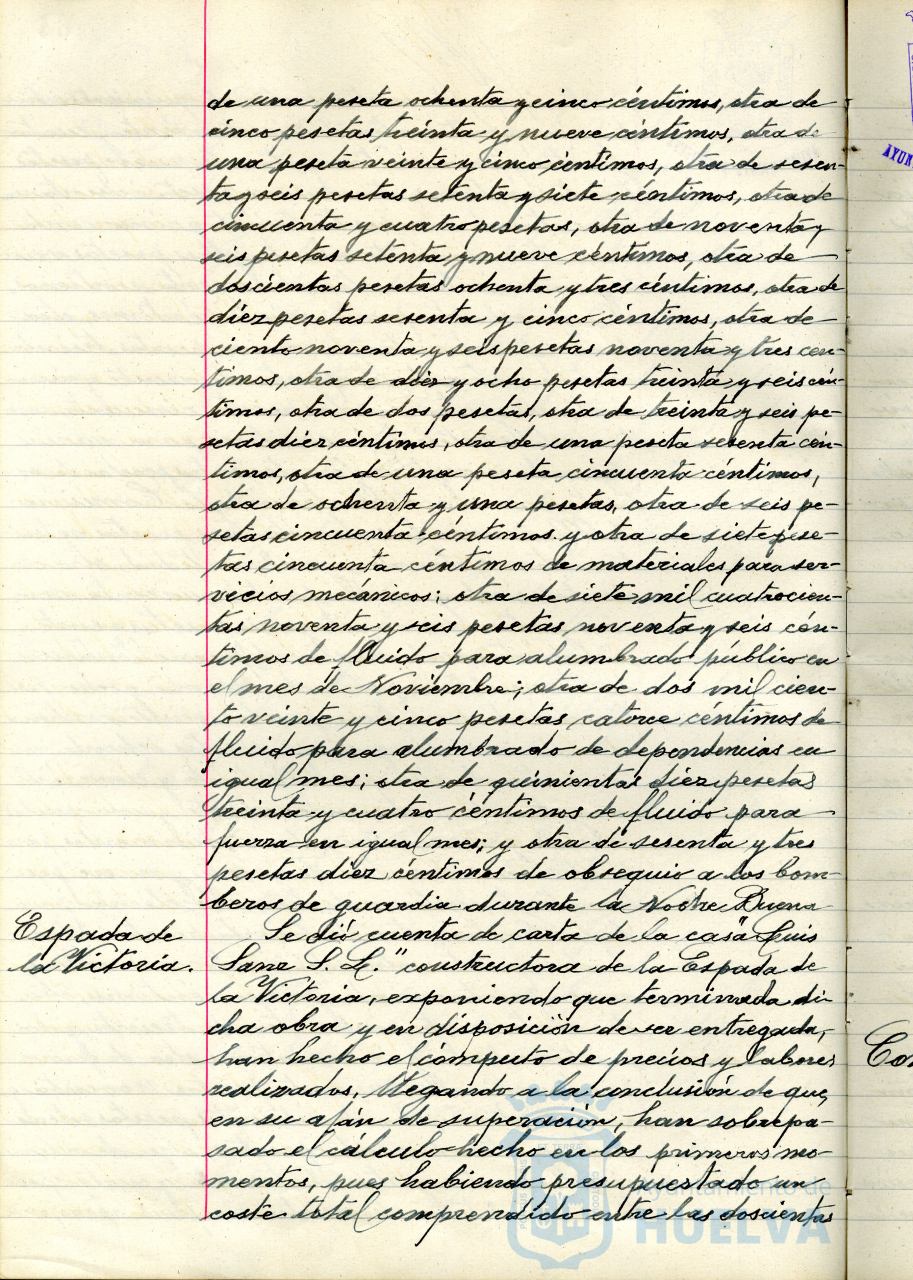 de una peseta ochenta y cinco céntimos, otra de
cinco pesetas treinta y nueve céntimos, otra de
una peseta veinte y cinco céntimos, otra de sesen-
ta y seis pesetas setenta y siete céntimos, otra de
cincuenta y cuatro pesetas, otra de noventa y
seis pesetas setenta y nueve céntimos, otra de
doscientas pesetas ochenta y tres céntimos, otra de
diez pesetas sesenta y cinco céntimos, otra de
ciento noventa y seis pesetas noventa y tres cén-
timos, otra de diez y ocho pesetas treinta y seis cén-
timos, otra de dos pesetas, otra de treinta y seis pe-
setas diez céntimos, otra de una peseta sesenta cén-
timos, otra de una peseta cincuenta céntimos,
otra de ochenta y una pesetas, otra de seis pe-
setas cincuenta céntimos y otra de siete pese-
tas cincuenta céntimos de materiales para ser-
vicios mecánicos; otra de siete mil cuatrocien-
tas noventa y seis pesetas noventa y seis cén-
timos de fluido para alumbrado público en
el mes de Noviembre; otra de dos mil cien-
to veinte y cinco pesetas catorce céntimos de
fluido para alumbrado de dependencias en
igual mes; otra de quinientas diez pesetas
treinta y cuatro céntimos de fluido para
fuerza en igual mes; y otra de sesenta y tres
pesetas diez céntimos de obsequio a los bom-
beros de guardia durante la Noche Buena
Espada de
la Victoria.
Se dió cuenta de carta de la casa "Luis
Sanz S. L." constructora de la Espada de
la Victoria, exponiendo que terminada di-
cha obra y en disposición de ser entregada,
han hecho el cómputo de precios y labores
realizados, llegando a la conclusión de que,
en su afán de superación, han sobrepa-
sado el cálculo hecho en los primeros mo-
mentos, pues habiendo presupuestado un
coste total comprendido entre las doscientas
Ayuntamiento de
HUELVA
AYUN
Co